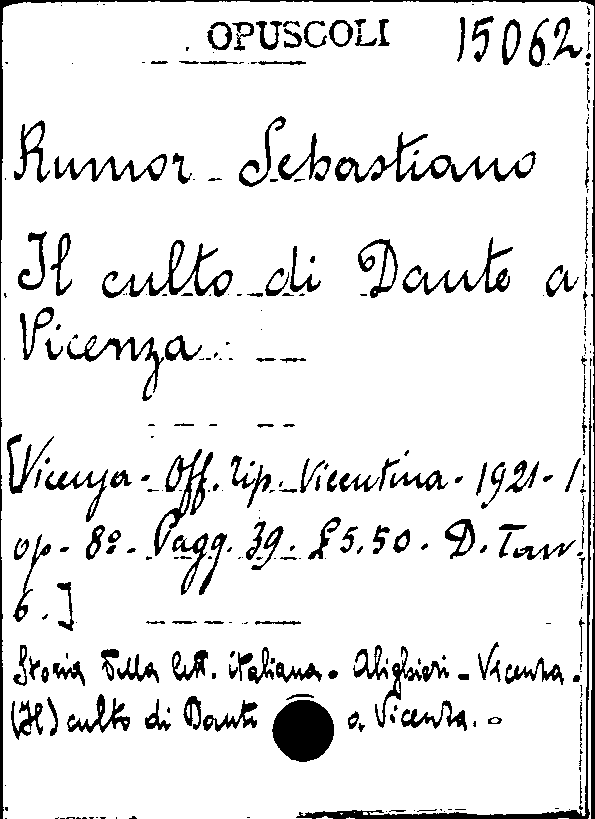 OPUSCOLI 15062
Rumor Sebastiano
Il culto di Dante a
Vicenza.
[Vicenza - Off. Tip. Vicentina - 1921 - 1
op - 8º - Pagg. 39 - £ 5.50 - D. Tav.
6.]
Storia della lett. italiana - Alighieri - Vicenza.
(Il) culto di Dante a Vicenza.